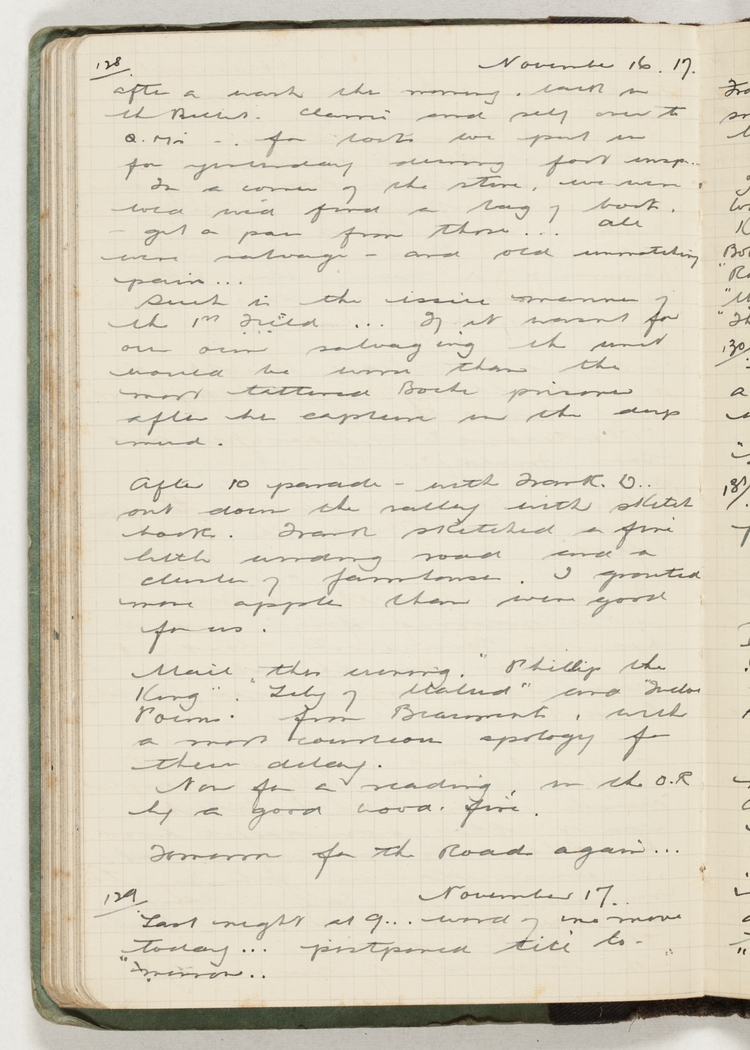 128/.
November 16. 17.
after a wash this morning. back in
the Billet. and self over to
Q.M's - . for boots we put in
for yesterday during foot insp..
In a corner of the store, we were
told we'd find a bag of boots.
- get a pair from those ... All
were salvage - and old unmatching
pairs...
Such is the issue manner of
the 1st Field ... If it wasn't for
our own salvaging the unit
would be worse than the
most tattered Boche prisoner
after he capture in the deep
mud.
After 10 parade - with Frank. O..
out down the valley with sketch
book. Frank sketched a fine
little winding road and a
cluster of farmhouse. I
more apples than were good
for us.
Mail this evening. "Phillip the
King". "Lily of Malud" and
Poems. from Beaumont, with
a most courteous apology for
their delay.
Now for a reading, in the O.R
by a good wood. fire.
Tomorrow for the Road again...
129/
November 17.
Last night at 9... word of no move
today... postponed till to-
"morrow..
130/
131/.